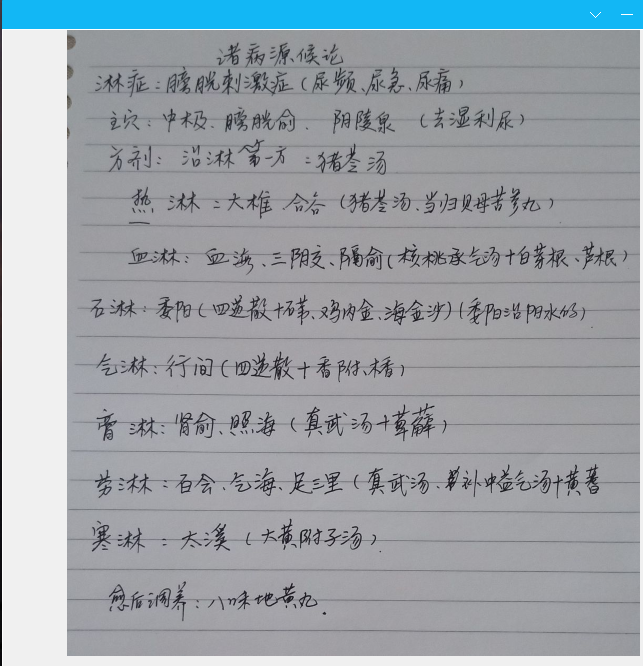 诸病源候论
淋症：膀胱刺激症（尿频、尿急、尿痛）
主穴：中极、膀胱俞、阴陵泉（去湿利尿）
方剂：治淋第一方：猪苓汤
热淋：大椎 合谷（猪苓汤、当归贝母苦参丸）
血淋：血海、三阴交、隔俞（核桃承气汤+白茅根、芦根）
石淋：委阳（四逆散+石苇、鸡内金、海金沙）（委阳治阳水的）
气淋：行间（四逆散+香附、木香）
膏淋：肾俞、照海（真武汤+萆薢）
劳淋：百会、气海、足三里（真武汤、补中益气汤+黄蓍
寒淋：太溪（大黄附子汤）
愈后调养：八味地黄丸.